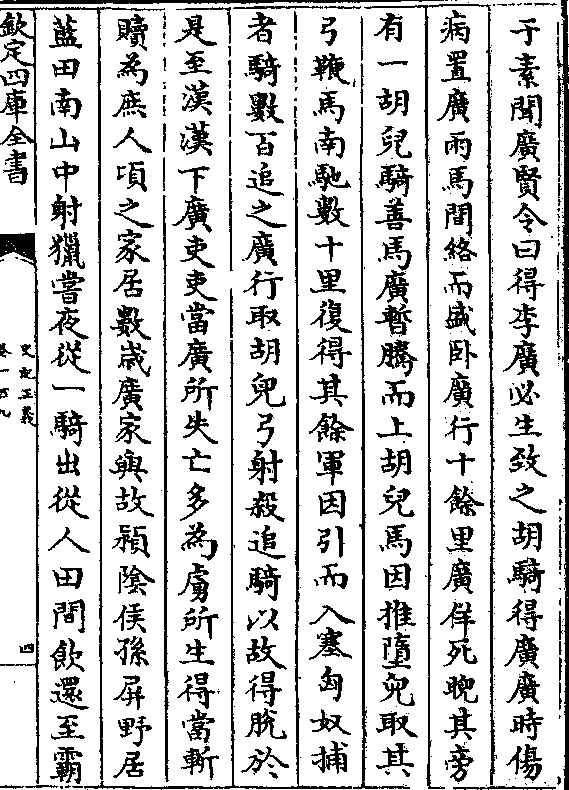 于素聞廣賢令曰得李廣必生致之胡騎得廣廣時傷
病置廣兩馬間絡而盛卧廣行十餘里廣佯死睨其旁
有一胡兒騎善馬廣暫騰而上胡兒馬因推墮兒取其
弓鞭馬南馳數十里復得其餘軍因引而入塞匈奴捕
者騎數百追之廣行取胡兒弓射殺追騎以故得脫於
是至漢漢下廣吏吏當廣所失亡多為虜所生得當斬
贖為庶人頃之家居數歲廣家與故潁陰侯孫屏野居
藍田南山中射獵嘗夜從一騎出從人田間飲還至霸
欽定四庫全書
史記正義
卷一百九
四